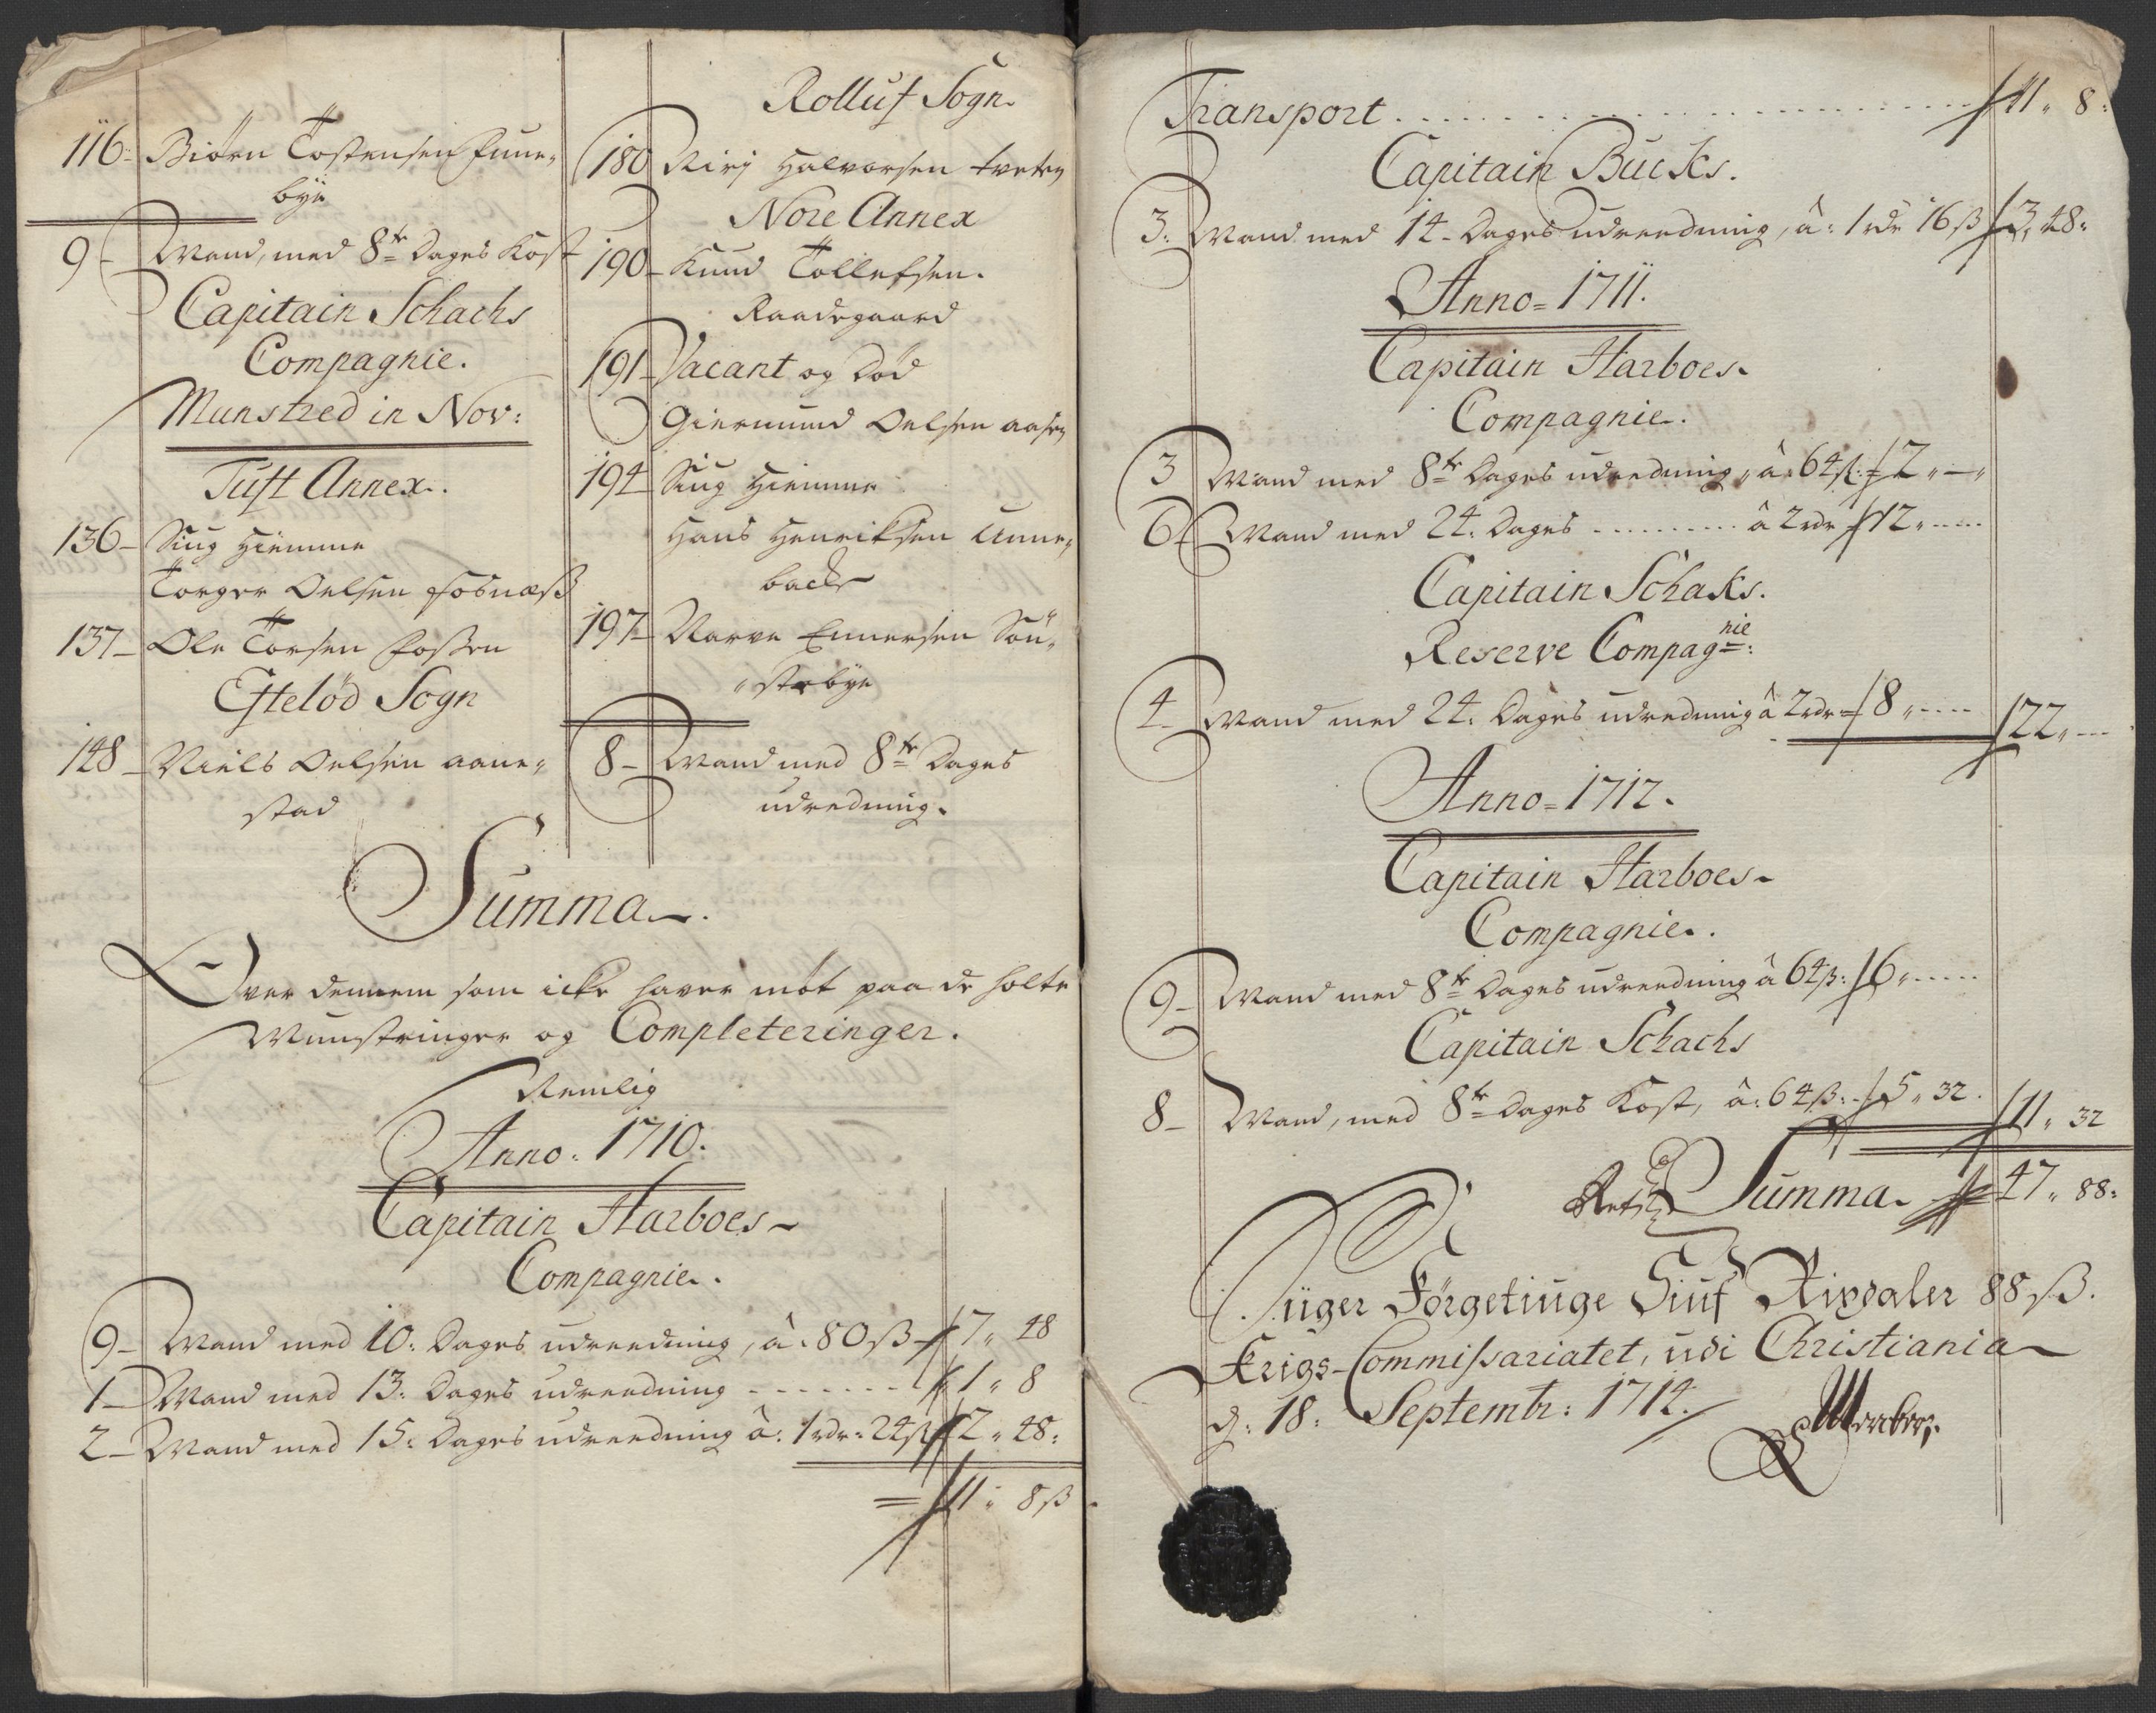 116- Biørn Tostensen Fune-
bye
9- Mand, med 8te Dages Kost
Capitain Schachs
Compagnie.
Munstred in Nov:
Tuft Annex.
136- Siug Hiemme
Torger Oelsen Fosnæß
137- Ole Torsen Foßen
Eftelöd Sogn
148- Niels Oelsen aane-
stad
Rolluf Sogn.
180 Kirj Halvorsen tveten
Nore Annex
190- Knud Tollefsen.
Raadegaard
191- Vacant og Död
Giermund Oelsen aasen
194- Siug Hiemme
Hans Henriksen Unne-
back
197- Narve Ennersen Sön-
stebye
8- Mand med 8te Dages
udredning.
Summa.
Over dennem som icke haver möt paa de holte
Munstringer og Completeringer.
Nemlig
Anno. 1710.
Capitain Harboes
Compagnie.
9- Mand med 10. Dages udreedning, â. 80 ß 7„ 48
1- Mand med 13. Dages udreedning - - - - - - - 1„ 8
2- Mand med 15. Dages udreedning â. 1 rdr. 24 ß 2„ 48.
= 11„ 8 ß
Transport . . . . . . . . . . . . 11„ 8.
Capitain Bucks.
3. Mand med 14. Dages udreedning, â. 1 rdr 16 ß 3„ 48.
Anno = 1711.
Capitain Harboes.
Compagnie.
3 Mand med 8te Dages udredning, â. 64 ß. 2„ -„
6- Mand med 24. Dages - - - - - - - â 2 rdr 12„ - - -
Capitain Schaks.
Reserve Compagnie:
4- Mand med 24. Dages udredning â 2 rdr 8„ - - - 22„ - -
Anno = 1712.
Capitain Harboes
Compagnie.
9- Mand med 8te Dages udreedning â 64 ß. 6„ - - -
Capitain Schachs
8- Mand, med 8te Dages Kost, â. 64 ß. 5„ 32. 11„ 32
Summa. 47„ 88.
Siuger Förgetiuge Siuf Rixdaler 88 ß.
Krigs-Commissariatet, udi Christiania
d. 18. Septembr: 1714.